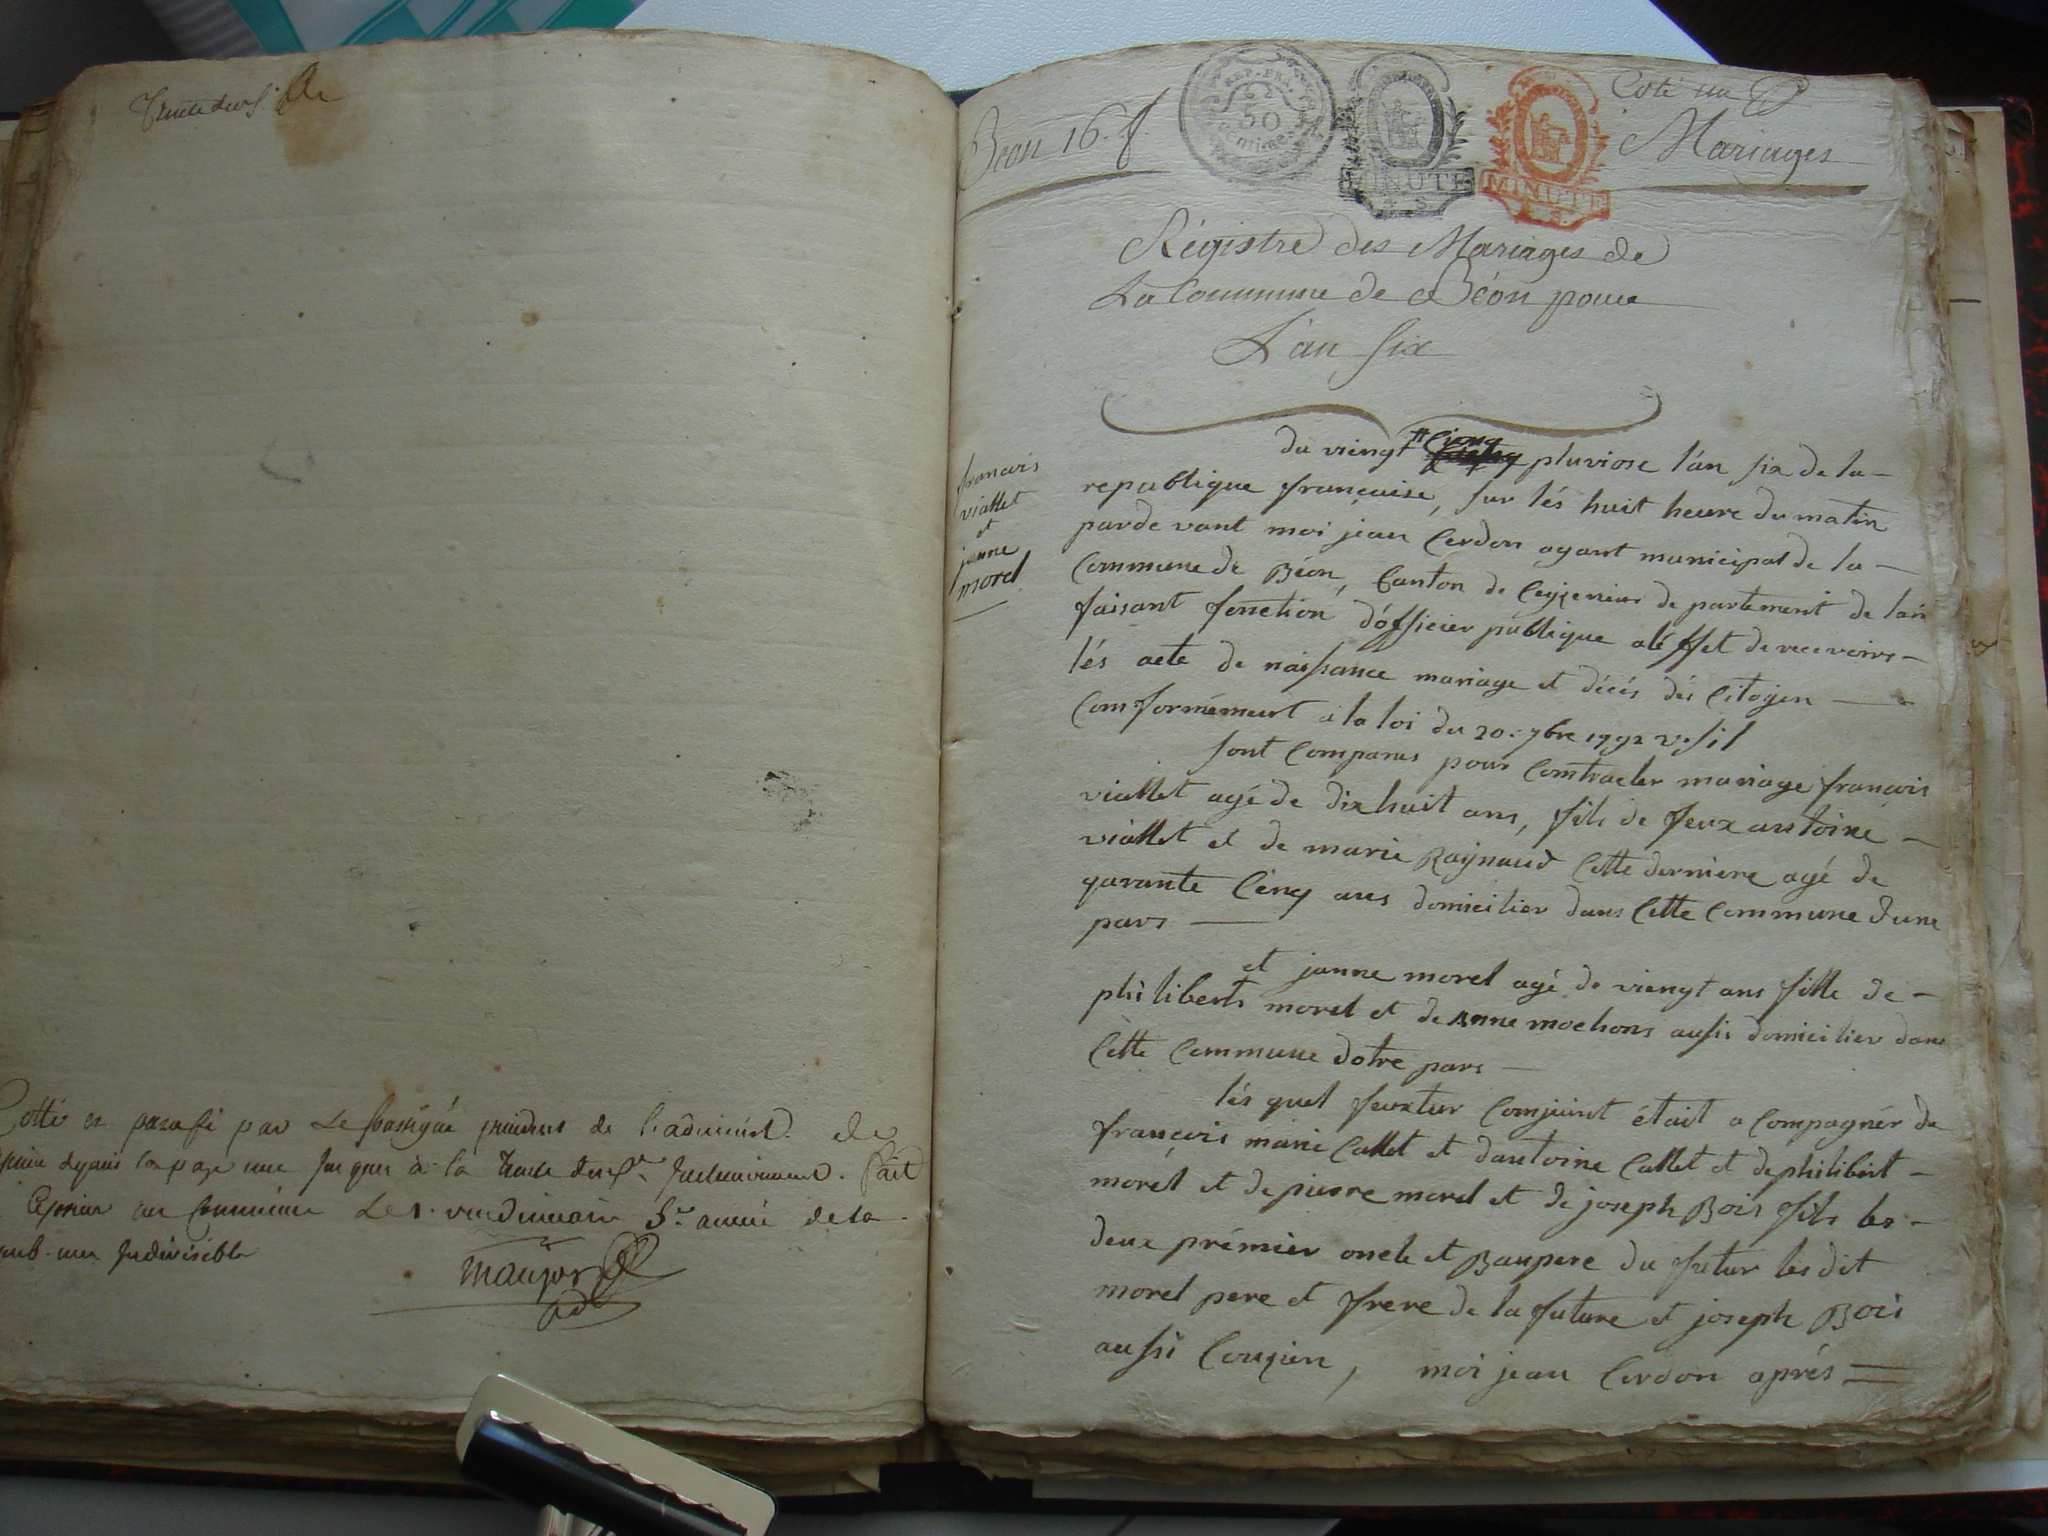 Cotté et paraffé par le soussigné president de l'administ. de
depuis la page une jusques à la trente deux.e inclusivement. fait
à Ceyzerieu au Commune le 1.er vendemiaire 6.e année de la
rep. une indivisible
maujor
Beon 16.f
REP. FRA.
50
MINUTE
MINUTE
Coté un
Mariages
Régistre des Mariages de
La Commune de Béon pour
L'an Six
francois
viallet
et
janne
morel
du viengt cienq pluviose l'an six de la
republique française, sur lés huit heure du matin
pardevant moi jean Cerdon agant municipal de la
Commune de Béon, Canton de Ceyzerieu departement de lain
faisant fonction d'officier publique aléffet de recevoirs
lés acte de naissance mariage et décés dés Citoyen
Comformément a la loi du 20. 7bre 1792 v. sil
sont Comparus pour Comtracter mariage françois
viallet agé de dix huit ans, fils de feux antoine
viallet et de marie Raynaud Cette derniere agé de
qarante Cenq ans domicilier dans Cette Commune dune
pars
et janne morel agé de viengt ans fille de
philiberts morel et de Anne mochons aussi domicilier dans
Cette Commune dotre pars
lés quel feuxtur Comjoint était a Compagnér de
françois marie Callet et dantoine Callet et de philibert
morel et de pierre morel et de joseph Bois fils les
deux prémier oncle et Baupere du futur les dit
morel pere et frere de la future et joseph Bois
aussi Couzien, moi jean Cerdon aprés